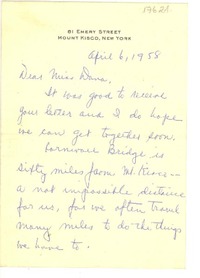 57621
81 EMERY STREET
MOUNT KISCO, NEW YORK
April 6, 1958
Dear Miss Dana,
It was good to receive
your letter and I do hope
we can get together soon.
Cornwall Bridge is
sixty miles from Mt. Kisco --
a not impossible distance
for us, for we often travel
many miles to do the things
we have to.